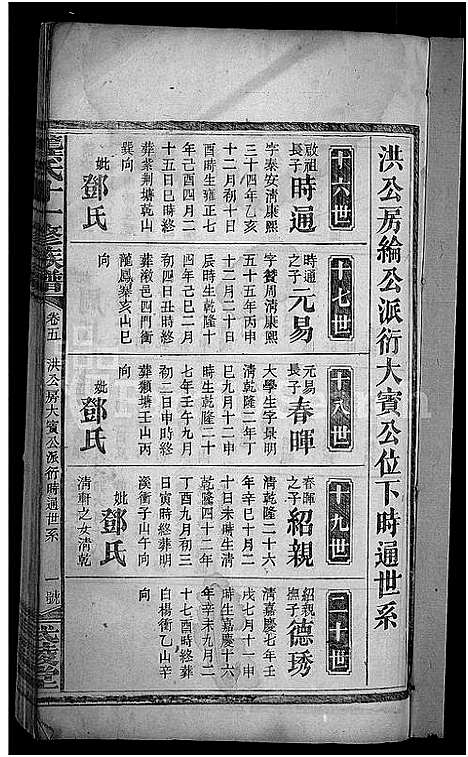 洪公房綸公派衍大賓公位下時通世系
十六世
啟祖長子時通
字泰安清康熙
三十四年乙亥
十二月初十日
酉時生雍正七
年己酉四月二
十五日巳時終
葬紫荆塘乾山
巽向
妣鄧氏
十七世
時通之子元易
字贊周清康熙
五十五年丙申
十二月二十日
辰時生乾隆十
四年己巳二月
初四日丑時終
葬潡邑四門衝
龍鳳寨亥山巳
向
十八世
元易長子春暉
大學生字景明
清乾隆二年丁
巳九月十二申
時生乾隆二十
七年壬午九月
初二日申時終
葬類塘壬山丙
向
妣鄧氏
十九世
春暉之子紹親
清乾隆二十六
年辛巳十月二
十日未時生清
乾隆四十二年
丁酉九月初三
日寅時終葬明
溪衝子山午向
妣鄧氏
清軒之女清乾
二十世
紹親撫子德琇
清嘉慶七年壬
戌七月十一申
時生嘉慶十六
年辛未九月二
十七酉時終葬
白楊衝乙山辛
向
氏十一修族譜
卷五
洪公房大賓公派衍時通世系
一號